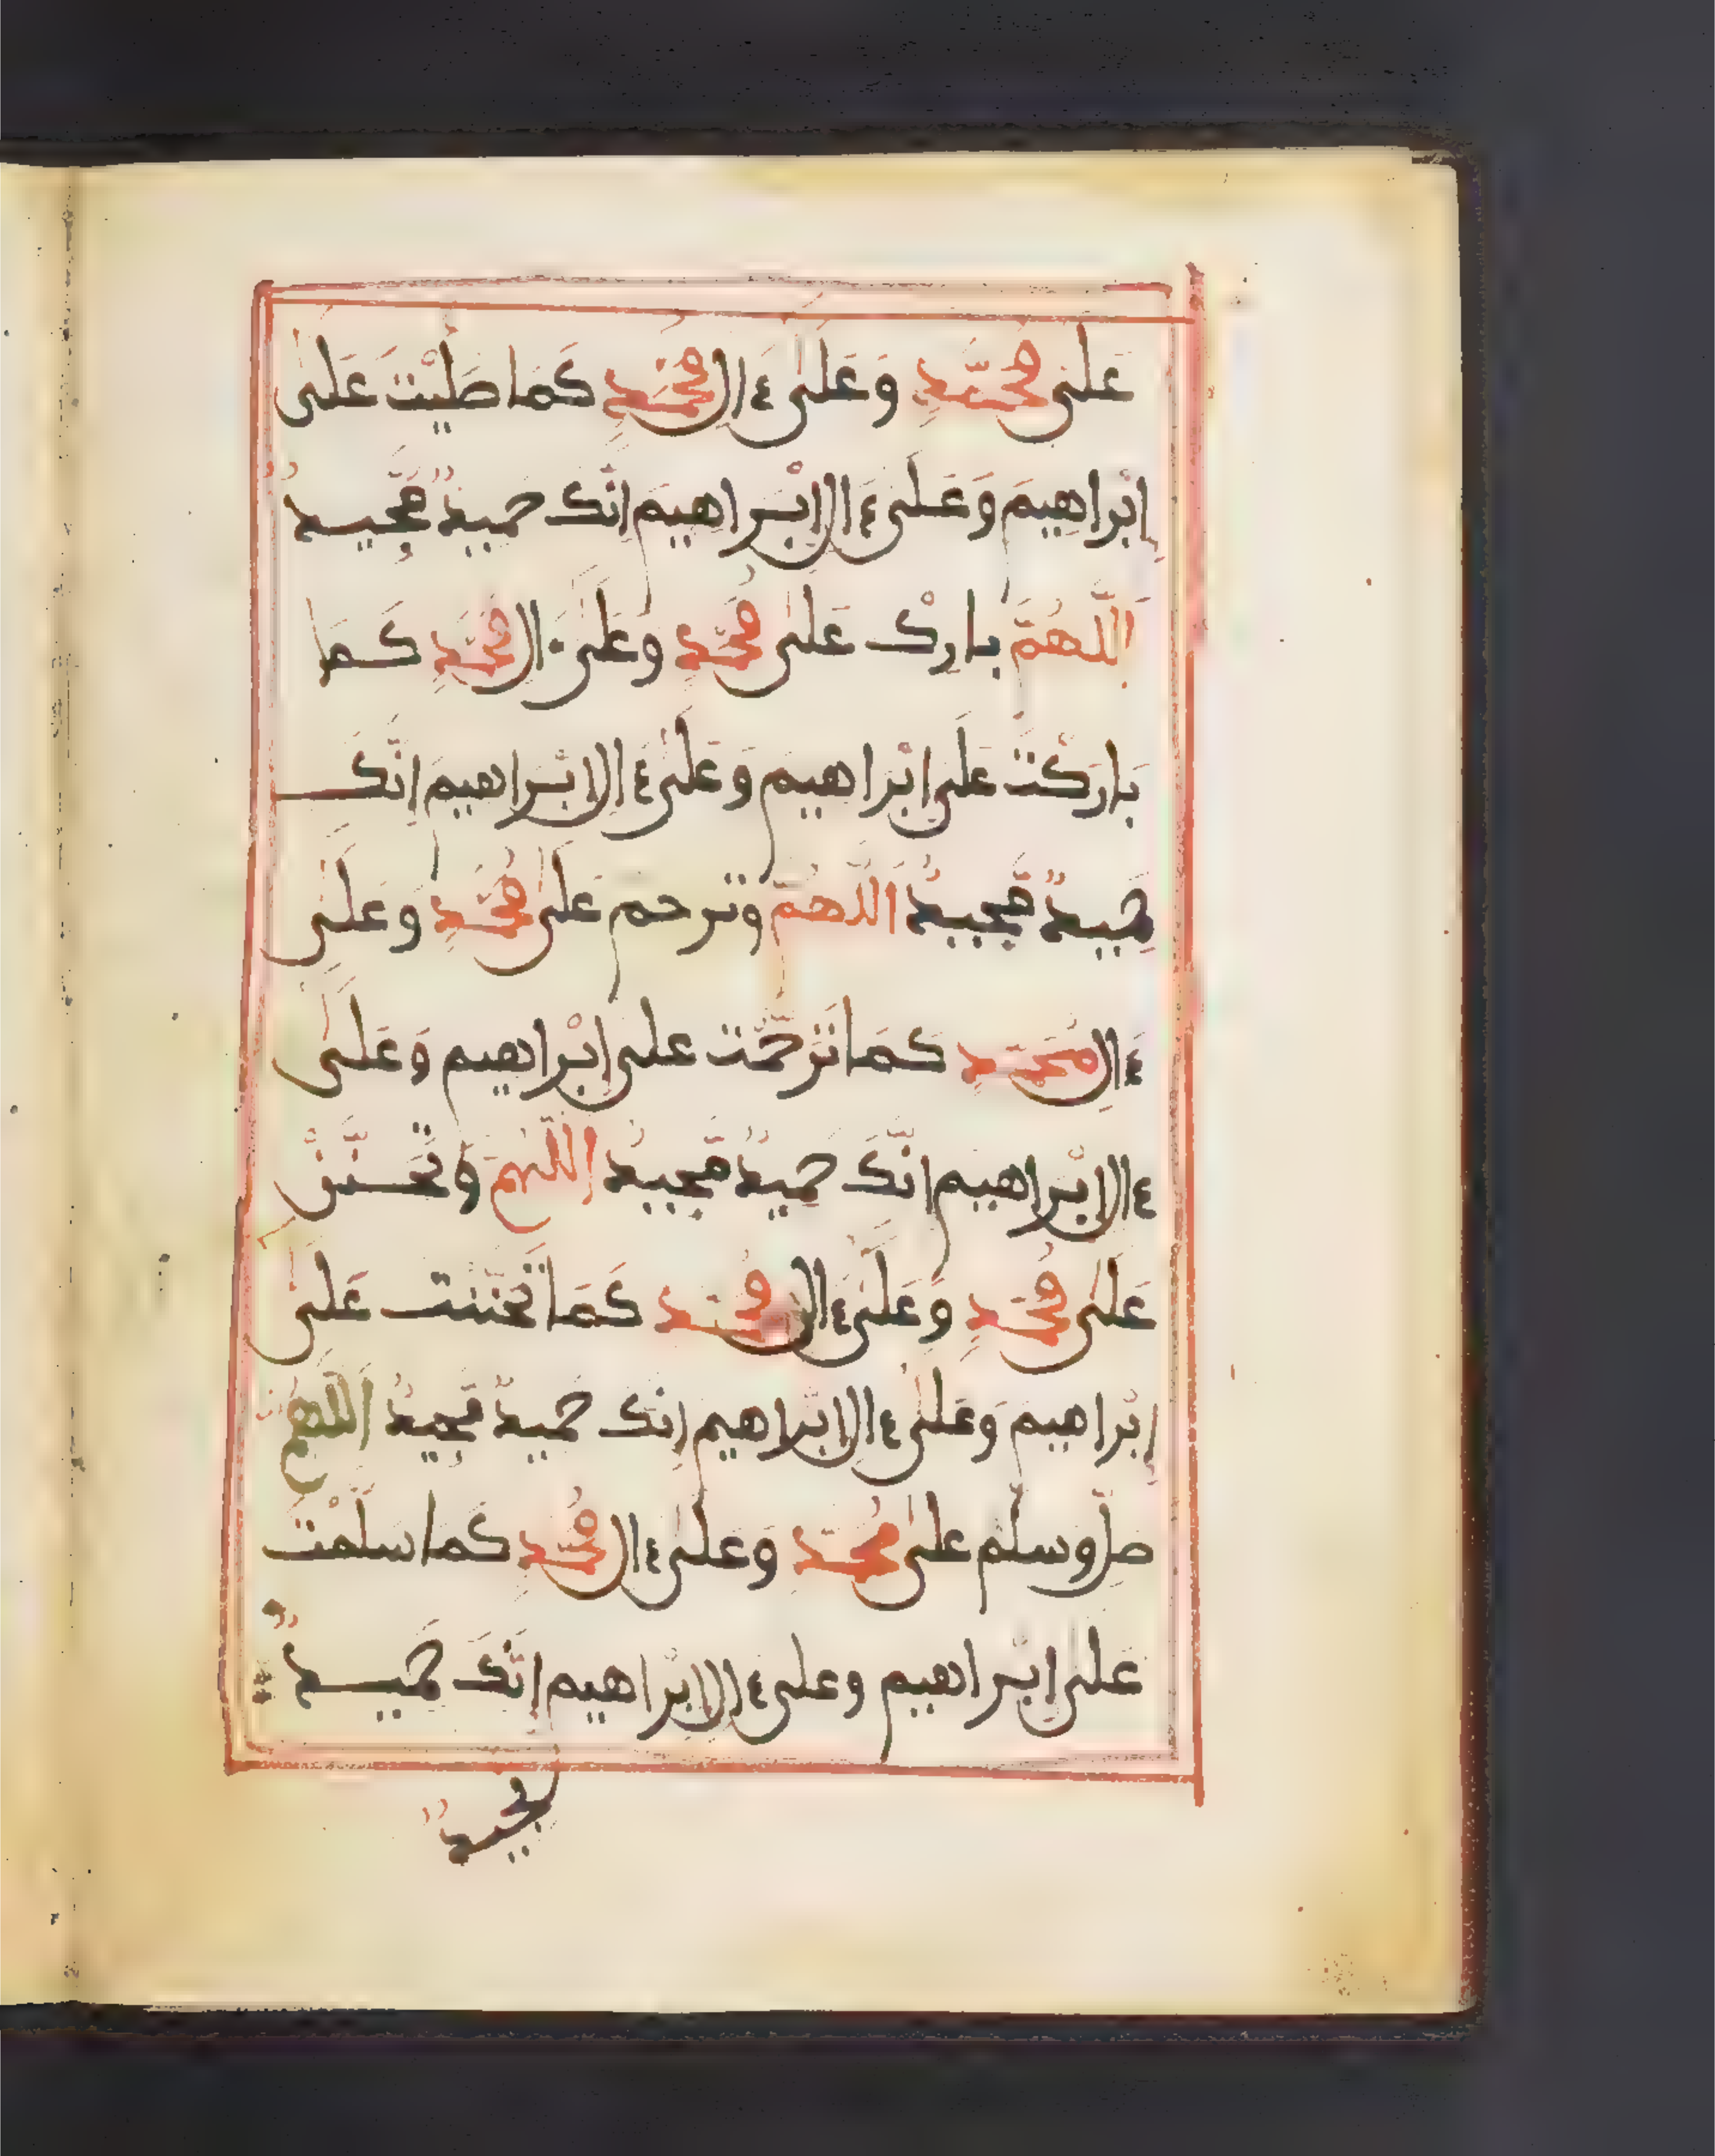 عَلَىٰ مُحَمَّدٍ وَعَلَىٰ ءَالِ مُحَمَّدٍ كَمَا صَلَّيْتَ عَلَىٰ
إِبْرَاهِيمَ وَعَلَىٰ ءَالِ إِبْرَاهِيمَ إِنَّكَ حَمِيدٌ مَّجِيدٌ
اَللَّهُمَّ بَارِكْ عَلَىٰ مُحَمَّدٍ وَعَلَىٰ ءَالِ مُحَمَّدٍ كَمَا
بَارَكْتَ عَلَىٰ إِبْرَاهِيمَ وَعَلَىٰ ءَالِ إِبْرَاهِيمَ إِنَّكَ
حَمِيدٌ مَّجِيدٌ اَللَّهُمَّ وَتَرَحَّمْ عَلَىٰ مُحَمَّدٍ وَعَلَىٰ
ءَالِ مُحَمَّدٍ كَمَا تَرَحَّمْتَ عَلَىٰ إِبْرَاهِيمَ وَعَلَىٰ
ءَالِ إِبْرَاهِيمَ إِنَّكَ حَمِيدٌ مَّجِيدٌ اَللَّهُمَّ وَتَحَنَّنْ
عَلَىٰ مُحَمَّدٍ وَعَلَىٰ ءَالِ مُحَمَّدٍ كَمَا تَحَنَّنْتَ عَلَىٰ
إِبْرَاهِيمَ وَعَلَىٰ ءَالِ إِبْرَاهِيمَ إِنَّكَ حَمِيدٌ مَّجِيدٌ اَللَّهُمَّ
صَلِّ وَسَلِّمْ عَلَىٰ مُحَمَّدٍ وَعَلَىٰ ءَالِ مُحَمَّدٍ كَمَا سَلَّمْتَ
عَلَىٰ إِبْرَاهِيمَ وَعَلَىٰ ءَالِ إِبْرَاهِيمَ إِنَّكَ حَمِيدٌ
مَّجِيدٌ